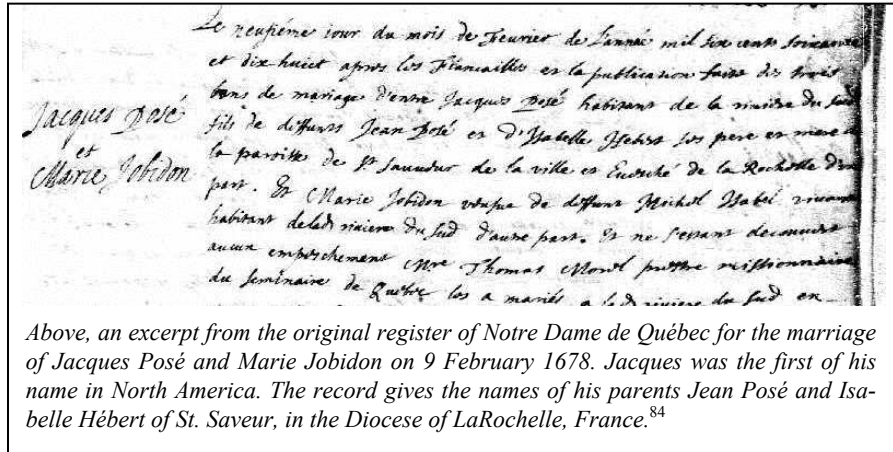 Le neufiéme iour du mois de Feurier de l'anneé mil six cents soixante
et dix huict apres les Fiancailles et la publication faite des trois
bans de mariage d'entre Jacques Posé habitant de la riuiere du Sud
fils de diffunts Jean Posé et d'Isabelle Hebert ses pere et mere de
la paroisse de St Sauueur de la ville et Euesché de la Rochelle d'une
part. Et Marie Jobidon veufue de diffunt Michel Isabel viuant
habitant de lad riuiere du Sud d'autre part. Et ne s'estant decouuert
aucun empeschement Mre Thomas Morel prestre missionnaire
du seminaire de Quebec les a mariés a lad riuiere du Sud en
Jacques Posé
et
Marie Jobidon
Above, an excerpt from the original register of Notre Dame de Québec for the marriage
of Jacques Posé and Marie Jobidon on 9 February 1678. Jacques was the first of his
name in North America. The record gives the names of his parents Jean Posé and Isa-
belle Hébert of St. Saveur, in the Diocese of LaRochelle, France.84